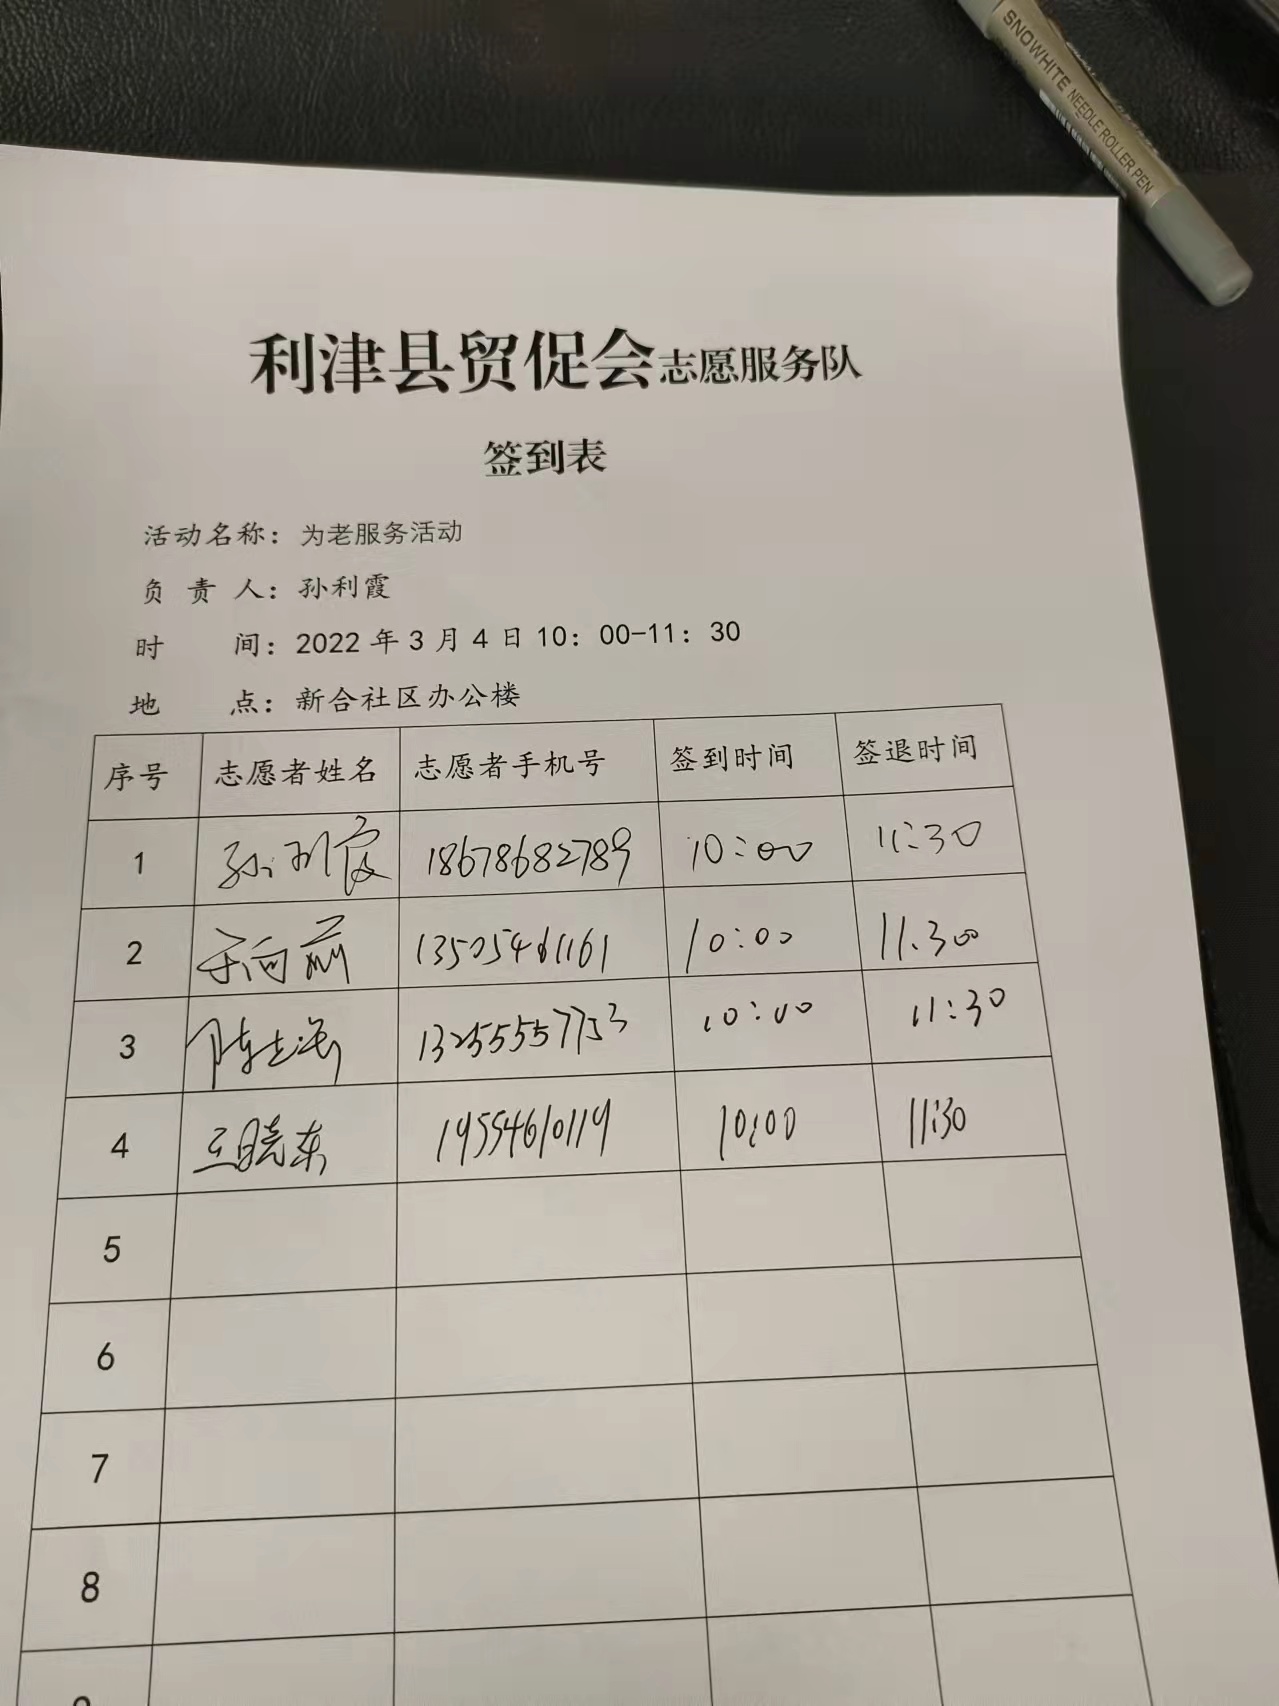 SNOWHITE NEEDLE ROLLER PEN
利津县贸促会志愿服务队
签到表
活动名称：为老服务活动
负责人：孙利霞
时间：2022年3月4日10：00-11：30
地点：新合社区办公楼
序号 志愿者姓名 志愿者手机号 签到时间 签退时间
1 孙利霞 18678682789 10:00 11:30
2 于向前 13505461161 10:00 11:30
3 陈 13255557753 10:00 11:30
4 王晓东 19554610119 10:00 11:30
5
6
7
8